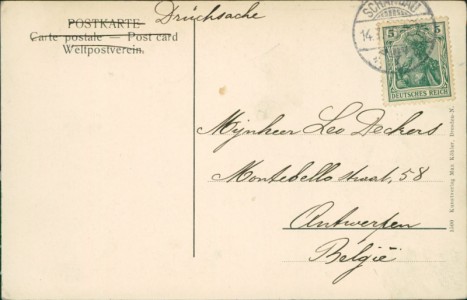 POSTKARTE Drucksache
Carte postale — Post card
Weltpostverein.
SCHANDAU
14.
5 5
DEUTSCHES REICH
Mijnheer Leo Deckers
Montebello straat, 58
Antwerpen
België
Kunstverlag Max Köhler, Dresden-N.